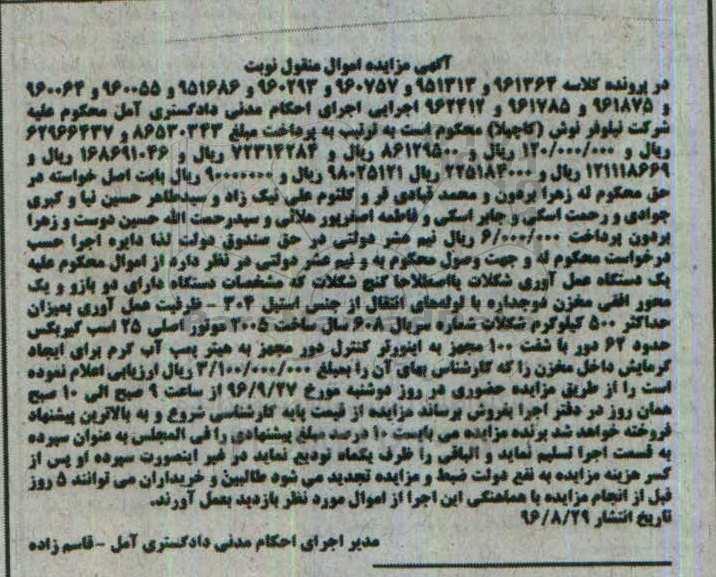 آگهی مزایده اموال منقول نوبت
در پرونده کلاسه ۹۶۱۳۶۴ و ۹۵۱۳۱۳ و ۹۶۰۷۵۷ و ۹۶۰۲۹۳ و ۹۵۱۶۸۶ و ۹۶۰۰۵۵ و ۹۶۰۰۶۴
و ۹۶۱۸۷۵ و ۹۶۱۷۸۵ و ۹۶۲۴۱۲ اجرایی اجرای احکام مدنی دادگستری آمل محکوم علیه
شرکت نیلوفر نوش (کاچیلا) محکوم است به ترتیب به پرداخت مبلغ ۸۶۵۳۰۳۴۳ و ۶۲۹۶۶۴۳۷
ریال و ۱۲۰/۰۰۰/۰۰۰ ریال و ۸۶۱۲۹۵۰۰ ریال و ۷۲۳۱۴۲۸۴ ریال و ۱۶۸۶۹۱۰۴۶ ریال و
۱۲۱۱۱۸۶۶۹ ریال و ۲۲۵۱۸۴۰۰۰ ریال ۹۸۰۲۵۱۲۱ ریال و ۹۰۰۰۰۰۰۰ ریال بابت اصل خواسته در
حق محکوم له زهرا بردون و محمد قبادی فر و کلثوم علی نیک زاد و سیدطاهر حسین نیا و کبری
جوادی و رحمت اسکی و جابر اسکی و فاطمه اصغرپور هلائی و سیدرحمت الله حسین دوست و زهرا
بردون پرداخت ۶/۰۰۰/۰۰۰ ریال نیم عشر دولتی در حق صندوق دولت لذا دایره اجرا حسب
درخواست محکوم له و جهت وصول محکوم به و نیم عشر دولتی در نظر دارد از اموال محکوم علیه
یک دستگاه عمل آوری شکلات بااصطلاحا کنچ شکلات که مشخصات دستگاه دارای دو بازو و یک
محور افقی مخزن دوجداره با لوله‌های انتقال از جنس استیل ۳۰۴ - ظرفیت عمل آوری بمیزان
حداکثر ۵۰۰ کیلوگرم شکلات شماره سریال ۶۰۸ سال ساخت ۲۰۰۵ موتور اصلی ۲۵ اسب گیربکس
حدود ۶۴ دور با شفت ۱۰۰ مجهز به اینورتر کنترل دور مجهز به هیتر پمپ آب گرم برای ایجاد
گرمایش داخل مخزن را که کارشناس بهای آن را بمبلغ ۳/۱۰۰/۰۰۰/۰۰۰ ریال ارزیابی اعلام نموده
است را از طریق مزایده حضوری در روز دوشنبه مورخ ۹۶/۹/۲۷ از ساعت ۹ صبح الی ۱۰ صبح
همان روز در دفتر اجرا بفروش برساند مزایده از قیمت پایه کارشناسی شروع و به بالاترین پیشنهاد
فروخته خواهد شد برنده مزایده می بایست ۱۰ درصد مبلغ پیشنهادی را فی المجلس به عنوان سپرده
به قسمت اجرا تسلیم نماید و الباقی را ظرف یکماه تودیع نماید در غیر اینصورت سپرده او پس از
کسر هزینه مزایده به نفع دولت ضبط و مزایده تجدید می شود طالبین و خریداران می توانند ۵ روز
قبل از انجام مزایده با هماهنگی این اجرا از اموال مورد نظر بازدید بعمل آورند.
تاریخ انتشار ۹۶/۸/۲۹
مدیر اجرای احکام مدنی دادگستری آمل - قاسم زاده